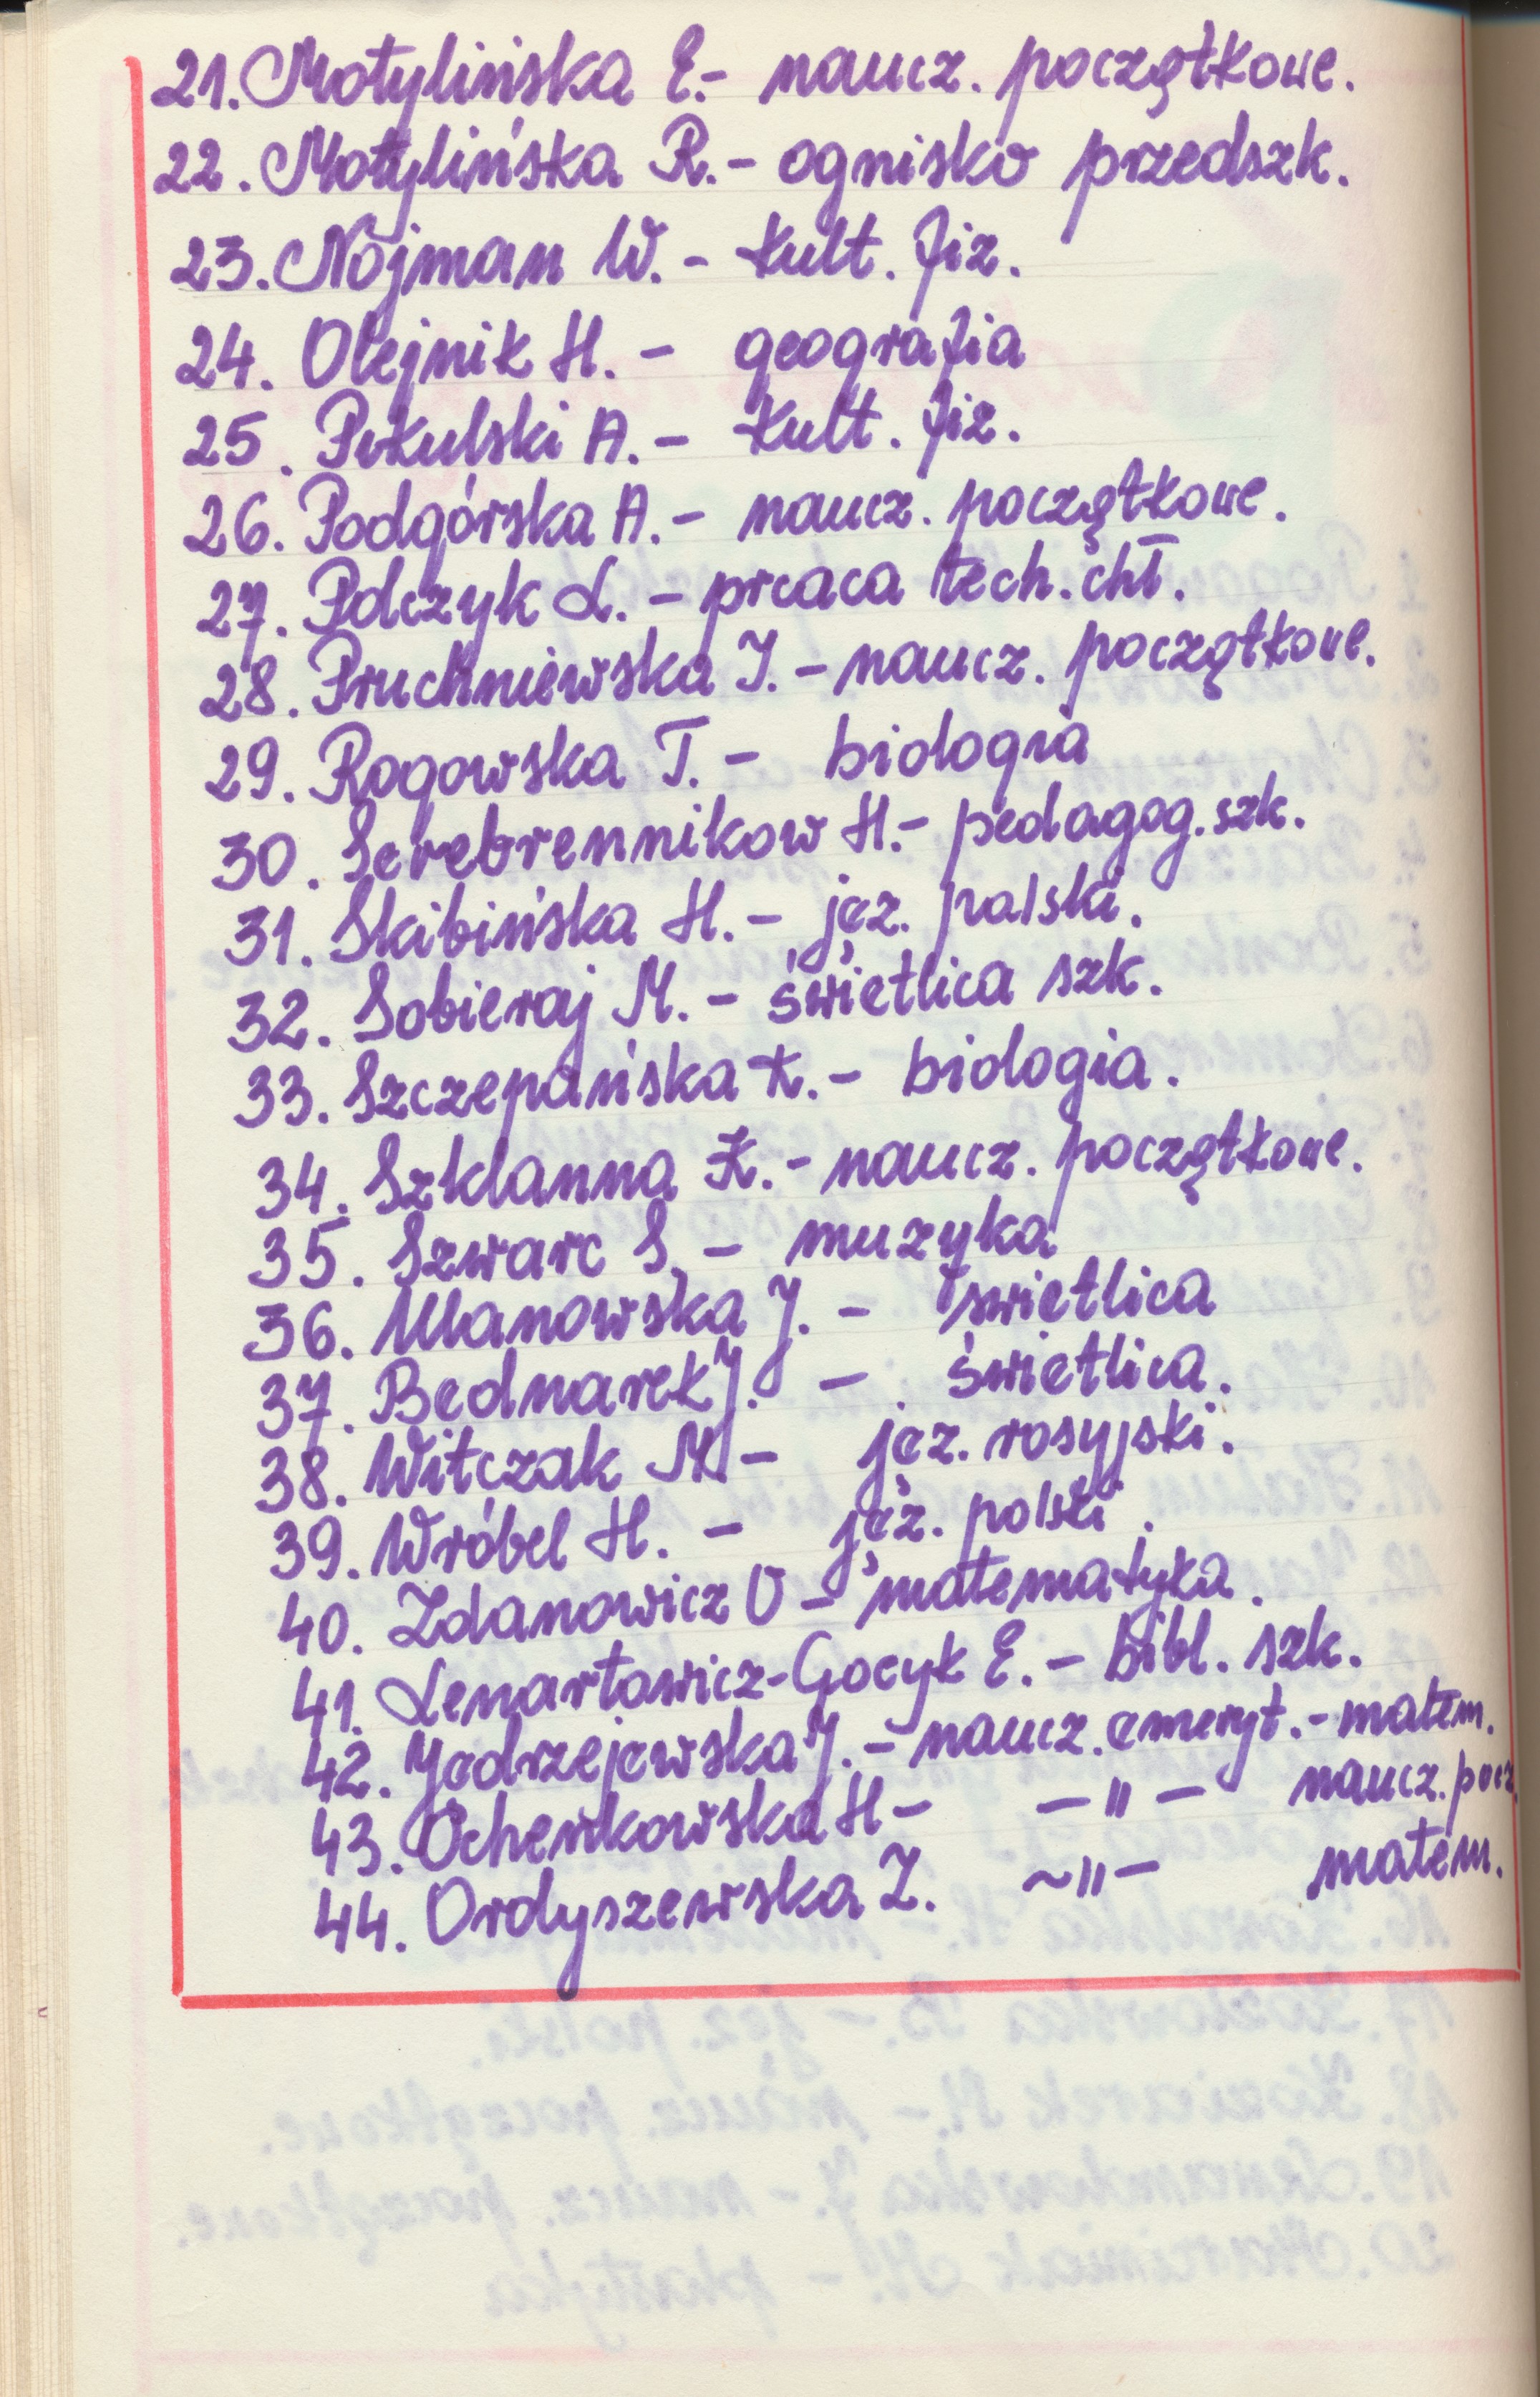 21. Motylińska E.- naucz. początkowe.
22. Motylińska R.- ognisko przedszk.
23. Nojman W. - kult. fiz.
24. Olejnik H. - geografia
25. Pikulski A. - kult. fiz.
26. Podgórska A. - naucz. początkowe.
27. Polczyk L. - praca tech. chł.
28. Pruchniewska J. - naucz. początkowe.
29. Rogowska T. - biologia
30. Serebrennikow H.- pedagog. szk.
31. Skibińska H. - jęz. polski.
32. Sobieraj M. - świetlica szk.
33. Szczepańska K. - biologia.
34. Szklanna K. - naucz. początkowe.
35. Szwarc S. - muzyka
36. Ulanowska J. - świetlica
37. Bednarek J. - świetlica.
38. Witczak M. - jęz. rosyjski.
39. Wróbel H. - jęz. polski.
40. Zdanowicz U - matematyka.
41. Lenartowicz-Gocyk E. - bibl. szk.
42. Jędrzejewska J. - naucz. emeryt. - matem.
43. Ochenkowska H - - " - naucz. pocz.
44. Ordyszewska Z. ~ " - matem.